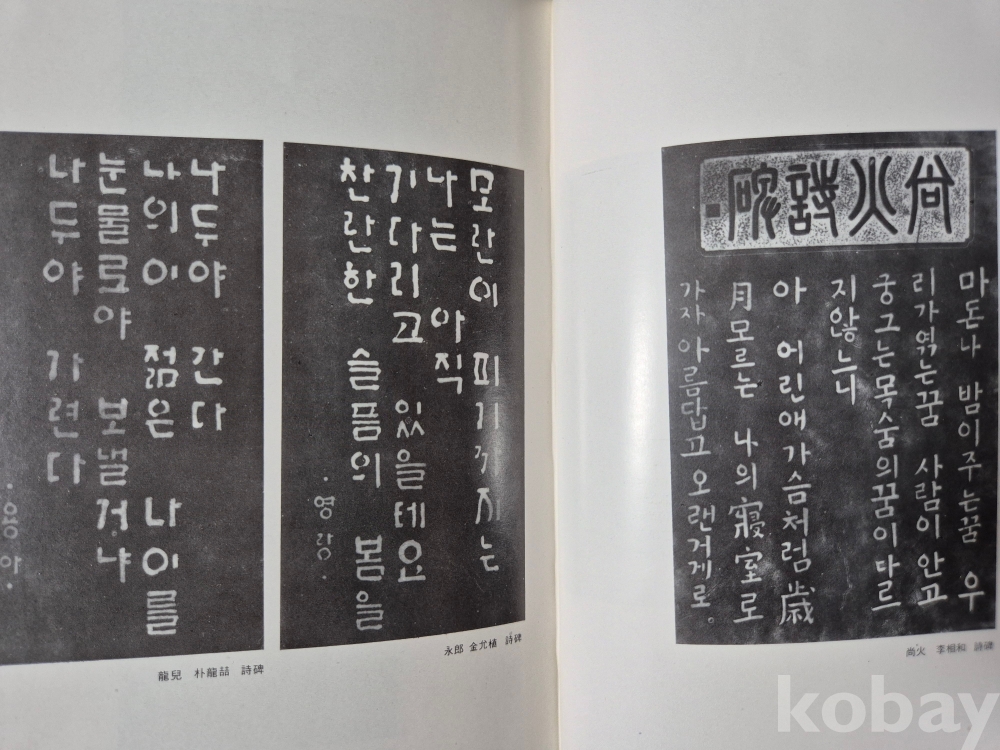 나두야 간다
나의 이 젊은 나이를
눈물로야 보낼 거냐
나두야 가련다
·용아·
龍兒 朴龍喆 詩碑
모란이 피기까지는
나는 아직
기다리고 있을테요
찬란한 슬픔의 봄을
·영랑·
永郎 金允植 詩碑
尙火詩碑
마돈나 밤이주는꿈 우
리가엮는꿈 사람이 안고
궁그는목숨의꿈이 다르
지않느니
아 어린애가슴처럼 歲
月모르는 나의 寢室로
가자 아름답고 오랜거게로。
尙火 李相和 詩碑
kobay